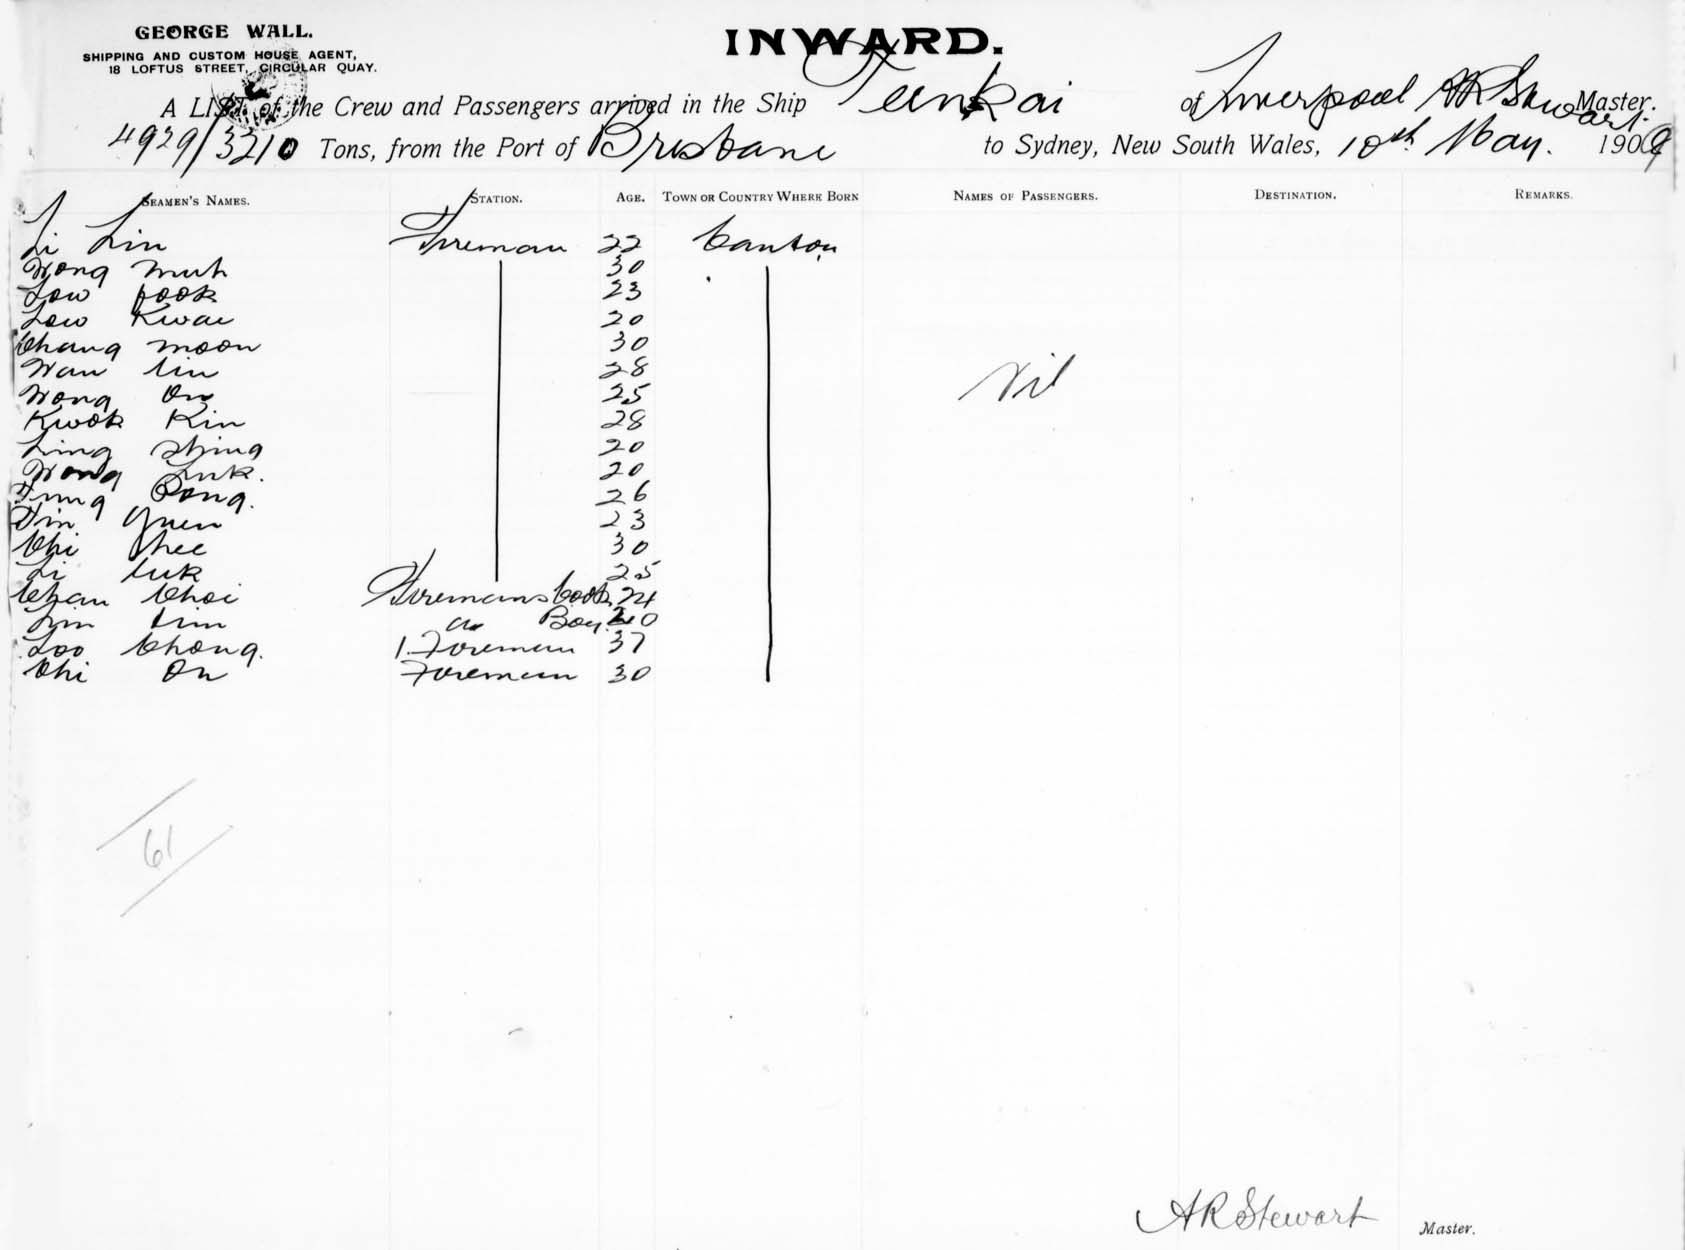 GEORGE WALL.
SHIPPING AND CUSTOM HOUSE AGENT,
18 LOFTUS STREET, CIRCULAR QUAY.
INWARD.
A LIST of the Crew and Passengers arrived in the Ship Teenkai of Liverpool A R Stewart Master.
4929/3210 Tons, from the Port of Brisbane to Sydney, New South Wales, 10th May. 1909
SEAMEN'S NAMES. STATION. AGE. TOWN OR COUNTRY WHERE BORN NAMES OF PASSENGERS. DESTINATION. REMARKS.
Li Lin Fireman 22 Canton
Wong Muk 30
Low Fook 23
Low Kwai 20
Chang Moon 30
Wan Lin 28
Nil
Wong On 25
Kwok Kin 28
Ling Shing 20
Wong Luk. 20
Fung Pong. 26
Yuen 23
Chi Chee 30
Li Luk 25
Chan Choi Firemans Cook 24
Lim Boy
Loo Chong. 1. Foreman 37
Chi On Foreman 30
61
A R Stewart Master.